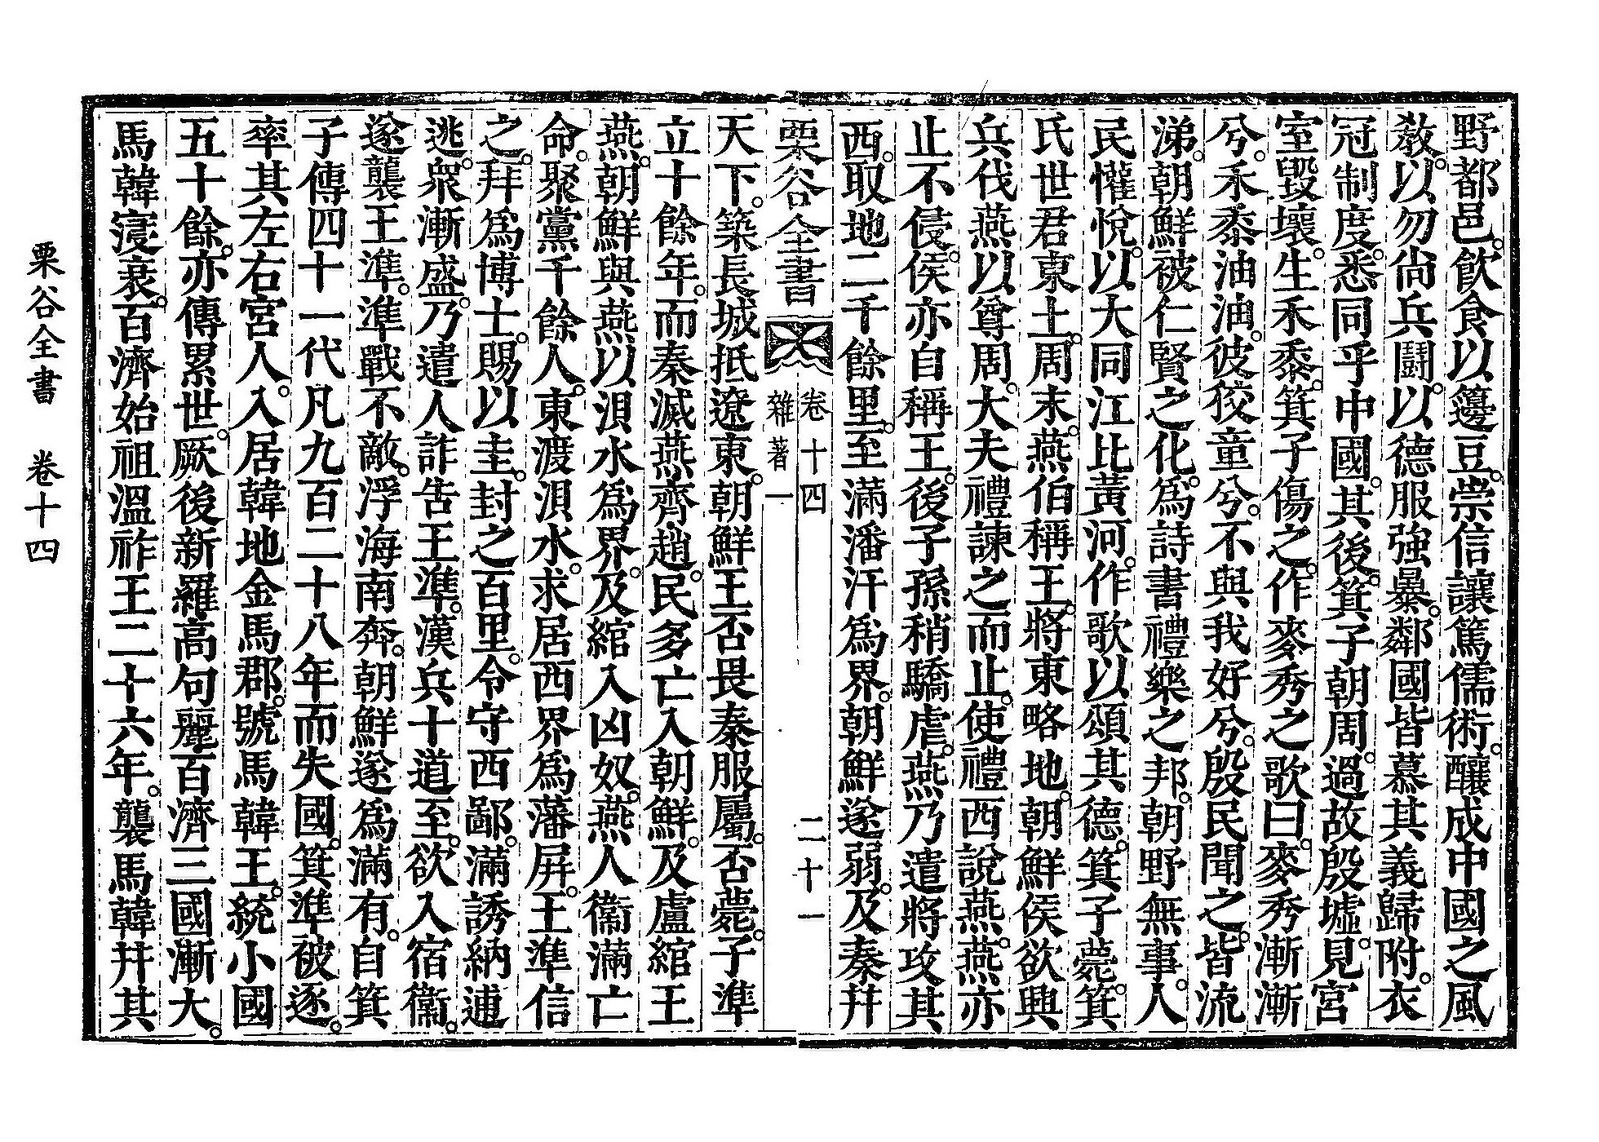 野都邑。飮食以籩豆。崇信讓篤儒術。釀成中國之風
敎。以勿尙兵鬪。以德服強暴。鄰國皆慕其義歸附。衣
冠制度。悉同乎中國。其後。箕子朝周。過故殷墟。見宮
室毀壞。生禾黍。箕子傷之。作麥秀之歌曰。麥秀漸漸
兮。禾黍油油。彼狡童兮。不與我好兮。殷民聞之。皆流
涕。朝鮮被仁賢之化。爲詩書禮樂之邦。朝野無事。人
民懽悅。以大同江比黃河。作歌以頌其德。箕子薨。箕
氏世君東土。周末。燕伯稱王。將東略地。朝鮮侯欲興
兵伐燕以尊周。大夫禮諫之而止。使禮西說燕。燕亦
止不侵。侯亦自稱王。後子孫稍驕虐。燕乃遣將攻其
西。取地二千餘里。至滿潘汗爲界。朝鮮遂弱。及秦幷
栗谷全書 卷十四 雜著一 二十一
天下。築長城抵遼東。朝鮮王否畏秦服屬。否薨。子準
立十餘年。而秦滅燕齊趙。民多亡入朝鮮。及盧綰王
燕。朝鮮與燕以浿水爲界。及綰入凶奴。燕人衞滿亡
命。聚黨千餘人。東渡浿水。求居西界爲藩屛。王準信
之。拜爲博士。賜以圭。封之百里。令守西鄙。滿誘納逋
逃。衆漸盛。乃遣人詐告王準。漢兵十道至。欲入宿衞。
遂襲王準。準戰不敵。浮海南奔。朝鮮遂爲滿有。自箕
子傳四十一代凡九百二十八年而失國。箕準被逐。
率其左右宮人。入居韓地金馬郡。號馬韓王。統小國
五十餘。亦傳累世。厥後新羅高句麗百濟三國漸大。
馬韓寖衰。百濟始祖溫祚王二十六年。襲馬韓幷其
栗谷全書 卷十四